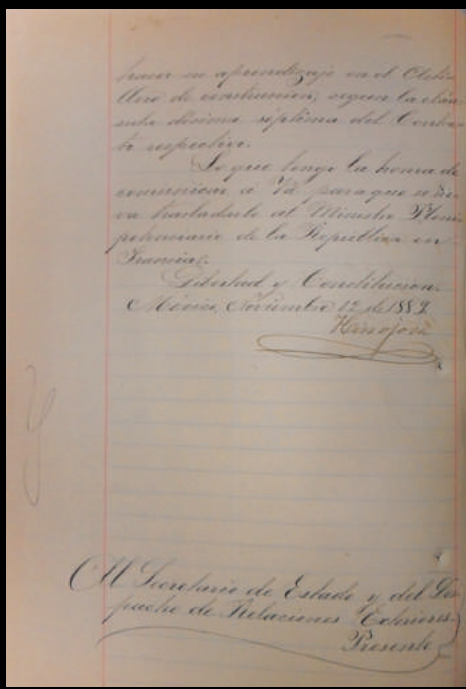 hacer su aprendizaje en el Asti-
llero de construccion, segun la cláu-
sula décima séptima del Contra-
to respectivo.
Lo que tengo la honra de
comunicar á Vd. para que se sir-
va trasladarlo al Ministro Pleni-
potenciario de la República en
Francia.
Libertad y Constitucion.
México, Noviembre 12 de 1889.
Hinojosa
Al Secretario de Estado y del Des-
pacho de Relaciones Exteriores.
Presente